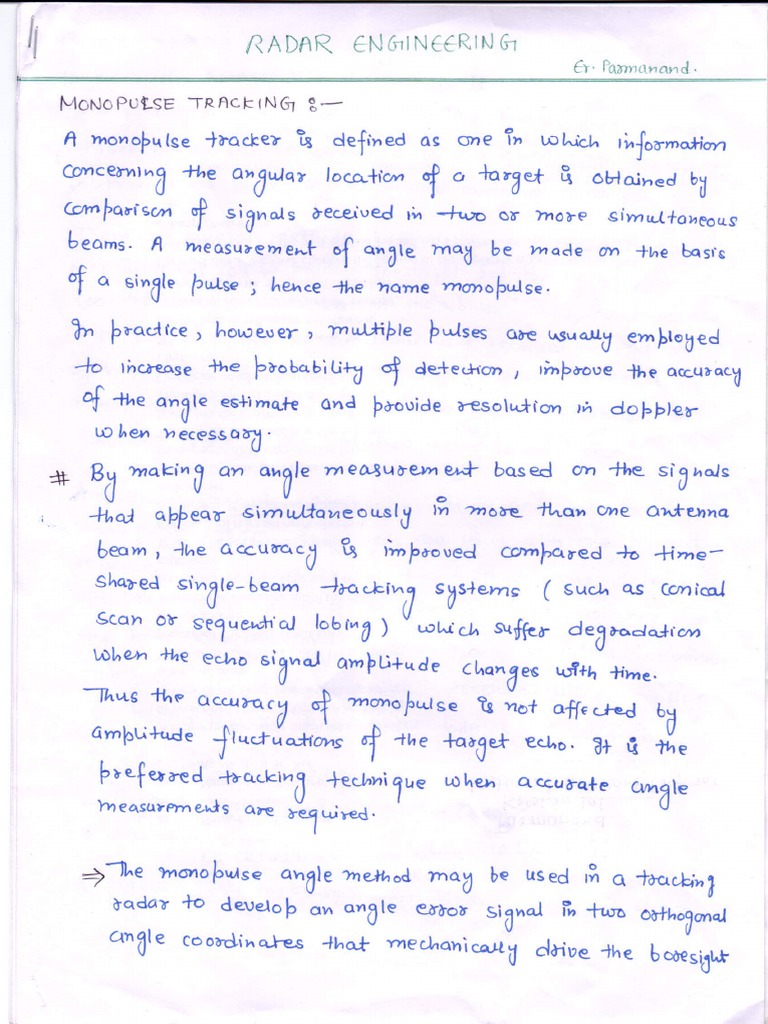 RADAR ENGINEERING
Er. Parmanand.
MONOPULSE TRACKING :-
A monopulse tracker is defined as one in which information
concerning the angular location of a target is obtained by
comparison of signals received in two or more simultaneous
beams. A measurement of angle may be made on the basis
of a single pulse; hence the name monopulse.
In practice, however, multiple pulses are usually employed
to increase the probability of detection, improve the accuracy
of the angle estimate and provide resolution in doppler
when necessary.
# By making an angle measurement based on the signals
that appear simultaneously in more than one antenna
beam, the accuracy is improved compared to time-
shared single-beam tracking systems (such as conical
scan or sequential lobing) which suffer degradation
when the echo signal amplitude changes with time.
Thus the accuracy of monopulse is not affected by
amplitude fluctuations of the target echo. It is the
preferred tracking technique when accurate angle
measurements are required.
⇒ The monopulse angle method may be used in a tracking
radar to develop an angle error signal in two orthogonal
angle coordinates that mechanically drive the boresight